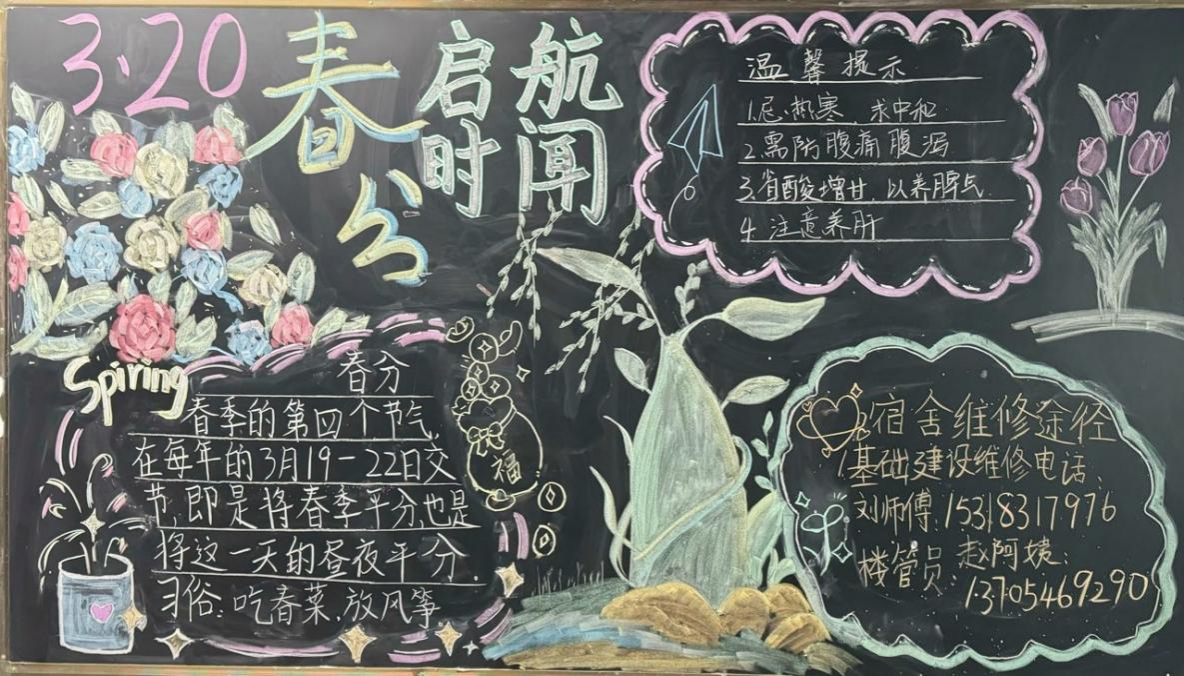 3.20
春分
启航
时闻
温馨提示
1.忌热寒,求中和
2.需防腹痛腹泻
3.省酸增甘,以养脾气
4.注意养肝
Spiring
春分
春季的第四个节气,
在每年的3月19-22日交
节,即是将春季平分,也是
将这一天的昼夜平分.
习俗:吃春菜,放风筝.
福
宿舍维修途径
基础建设维修电话:
刘师傅:15318317976
楼管员:赵阿姨:
13705469290